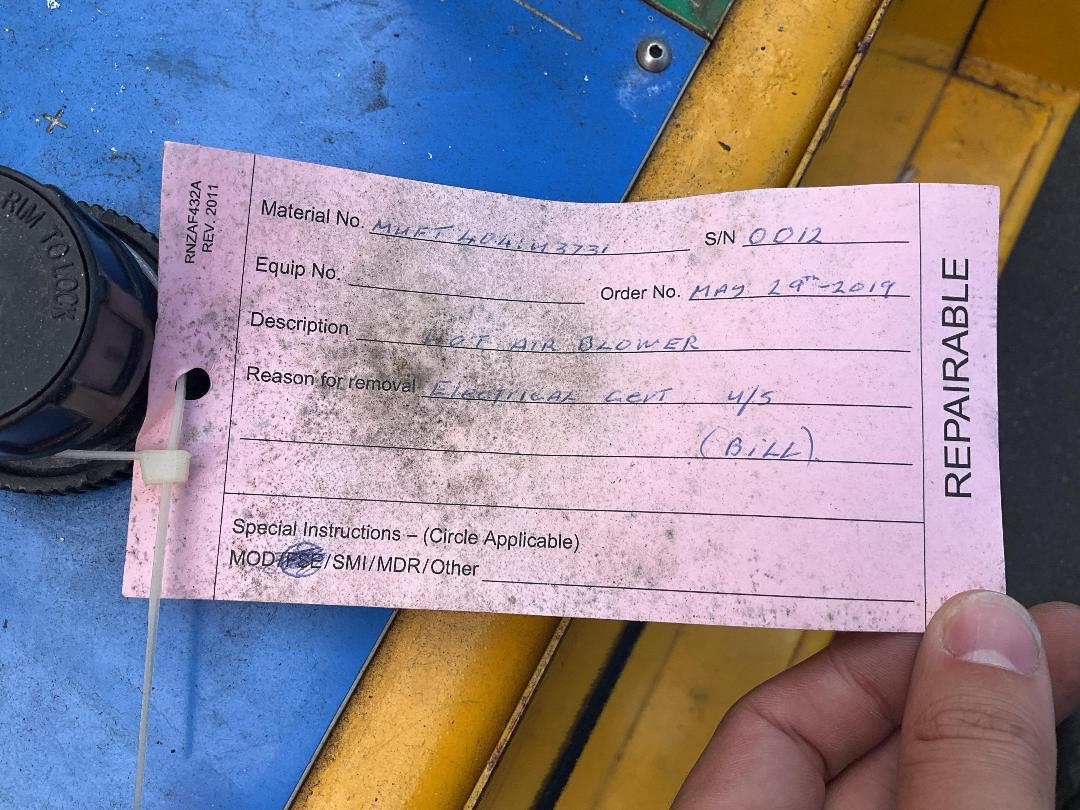 RIM TO LOCK
RNZAF432A
REV. 2011
Material No. MHFT 404:43731 S/N 0012
Equip No.
Order No. MAY 29TH-2019
Description HOT AIR BLOWER
Reason for removal Electrical Cert U/S
(BILL).
Special Instructions – (Circle Applicable)
MOD/FSE/SMI/MDR/Other
REPAIRABLE